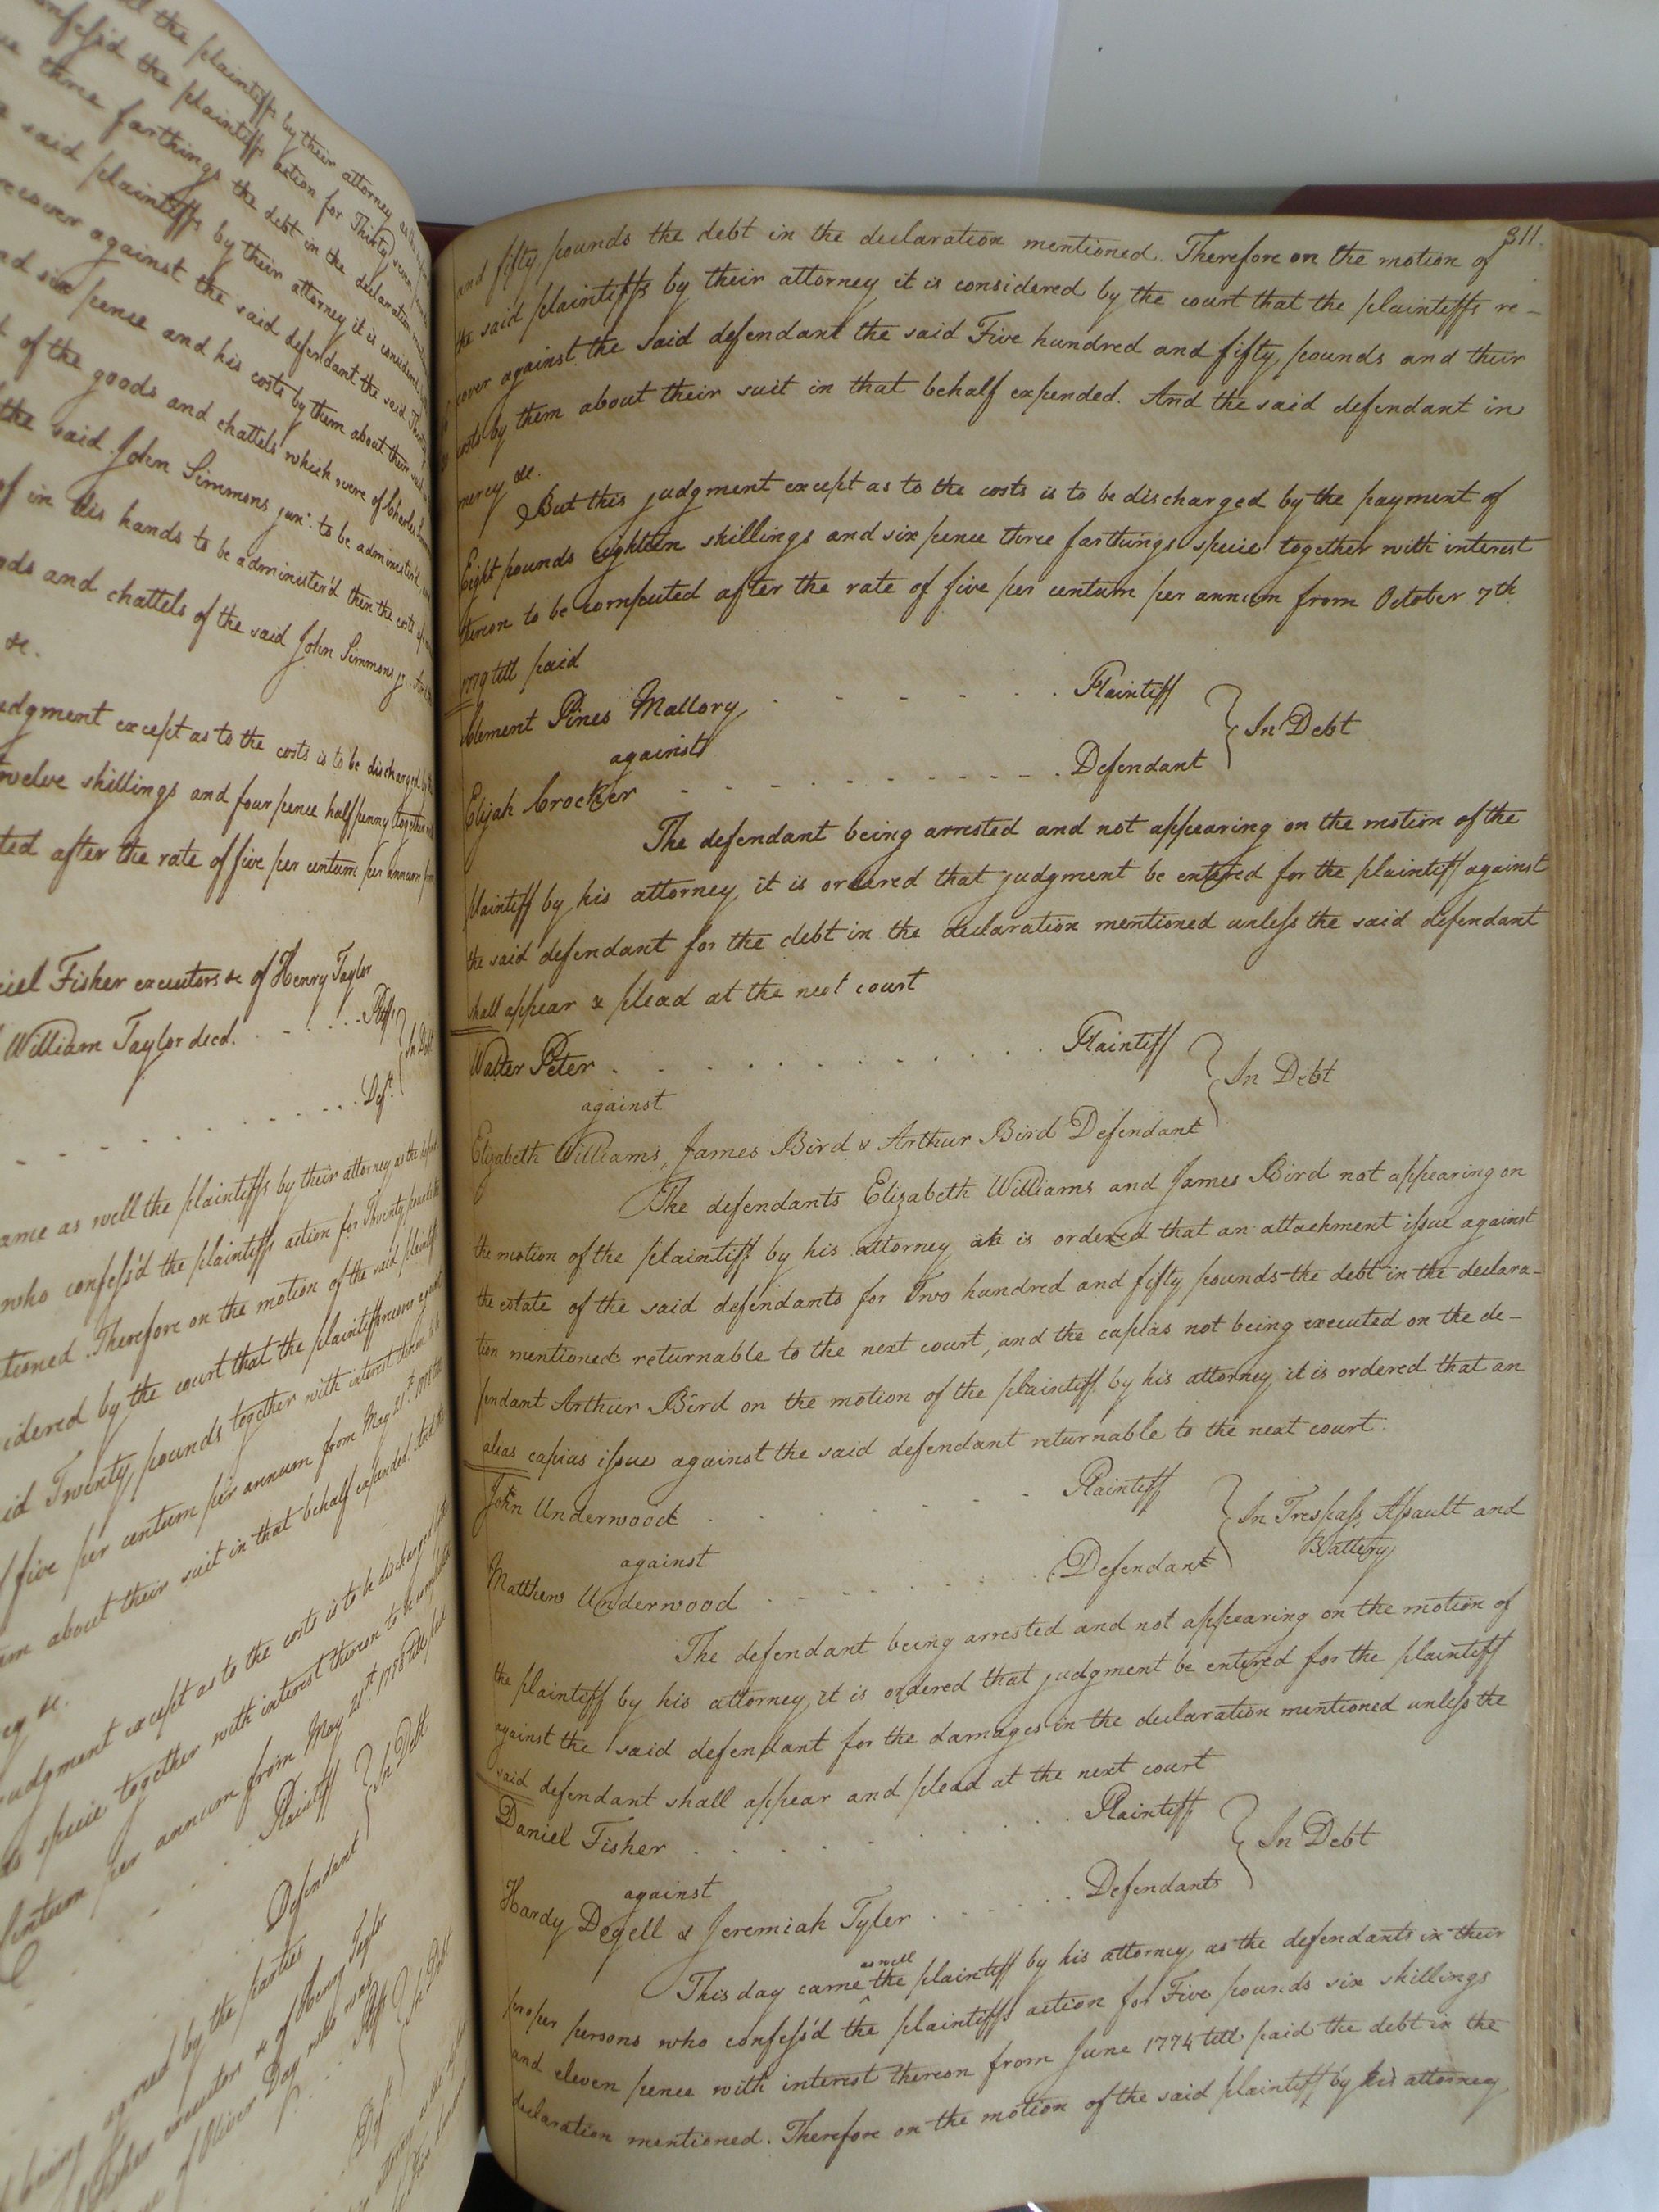 all the plaintiffs by their attorney as the
confess'd the plaintiffs action for Thirty seven
three farthings the debt in the declaration
said plaintiffs by their attorney it is considered
recover against the said defendant the said
and six pence and his costs by them about their suit
of the goods and chattels which were of Charles
the said John Simmons junr. to be administer'd
of in his hands to be administer'd then the costs
goods and chattels of the said John Simmons jr.
&c.
judgment except as to the costs is to be discharged by the
twelve shillings and four pence half penny together
ted after the rate of five per centum per annum
Fisher executors &c of Henry Taylor
William Taylor decd. Plffs.
In Debt
Deft.
came as well the plaintiffs by their attorney as the
who confess'd the plaintiffs action for Twenty pounds
tioned. Therefore on the motion of the said plaintiff
idered by the court that the plaintiffs recover against
said Twenty pounds together with interest thereon
five per centum per annum from May 21st.
about their suit in that behalf expended. And the
&c.
judgment except as to the costs is to be discharged
specie together with interest thereon to be computed
Centum per annum from May 21st. 1778 till paid
Plaintiff
In Debt
Defendant
being agreed by the parties
Fisher executors &c of Henry Taylor
of Oliver Day who was
Plffs
In Debt
Deft
311.
and fifty pounds the debt in the declaration mentioned. Therefore on the motion of
the said plaintiffs by their attorney it is considered by the court that the plaintiffs re-
cover against the said defendant the said Five hundred and fifty pounds and their
costs by them about their suit in that behalf expended. And the said defendant in
mercy &c.
But this judgment except as to the costs is to be discharged by the payment of
Eight pounds eighteen shillings and six pence three farthings specie together with interest
thereon to be computed after the rate of five per centum per annum from October 7th
1779 till paid
Clement Pines Mallory Plaintiff
against In Debt
Elijah Crocker Defendant
The defendant being arrested and not appearing on the motion of the
plaintiff by his attorney it is ordered that judgment be entered for the plaintiff against
the said defendant for the debt in the declaration mentioned unless the said defendant
shall appear & plead at the next court
Walter Peter Plaintiff
against In Debt
Elizabeth Williams, James Bird & Arthur Bird Defendant
The defendants Elizabeth Williams and James Bird not appearing on
the motion of the plaintiff by his attorney it is ordered that an attachment issue against
the estate of the said defendants for Two hundred and fifty pounds the debt in the declara-
tion mentioned returnable to the next court, and the capias not being executed on the de-
fendant Arthur Bird on the motion of the plaintiff by his attorney it is ordered that an
alias capias issue against the said defendant returnable to the next court.
John Underwood Plaintiff
against In Trespass Assault and
Battery
Matthew Underwood Defendant
The defendant being arrested and not appearing on the motion of
the plaintiff by his attorney it is ordered that judgment be entered for the plaintiff
against the said defendant for the damages in the declaration mentioned unless the
said defendant shall appear and plead at the next court
Daniel Fisher Plaintiff
against In Debt
Hardy Degell & Jeremiah Tyler Defendants
This day came as well the plaintiff by his attorney as the defendants in their
proper persons who confess'd the plaintiffs action for Five pounds six shillings
and eleven pence with interest thereon from June 1774 till paid the debt in the
declaration mentioned. Therefore on the motion of the said plaintiff by his attorney